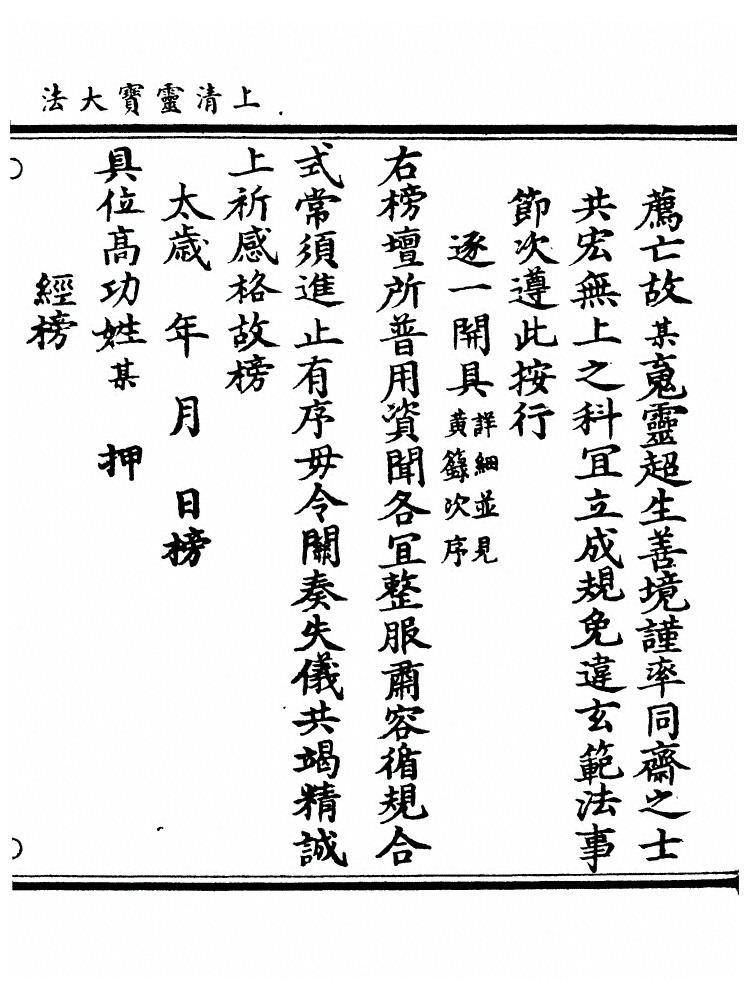 上清靈寶大法
薦亡故某䰟靈超生善境謹率同齋之士
共宏無上之科宜立成規免違玄範法事
節次遵此按行
逐一開具詳細並見
黃籙次序
右榜壇所普用資聞各宜整服肅容循規合
式常須進止有序毋令關奏失儀共竭精誠
上祈感格故榜
太歲 年 月 日榜
具位高功姓某 押
經榜